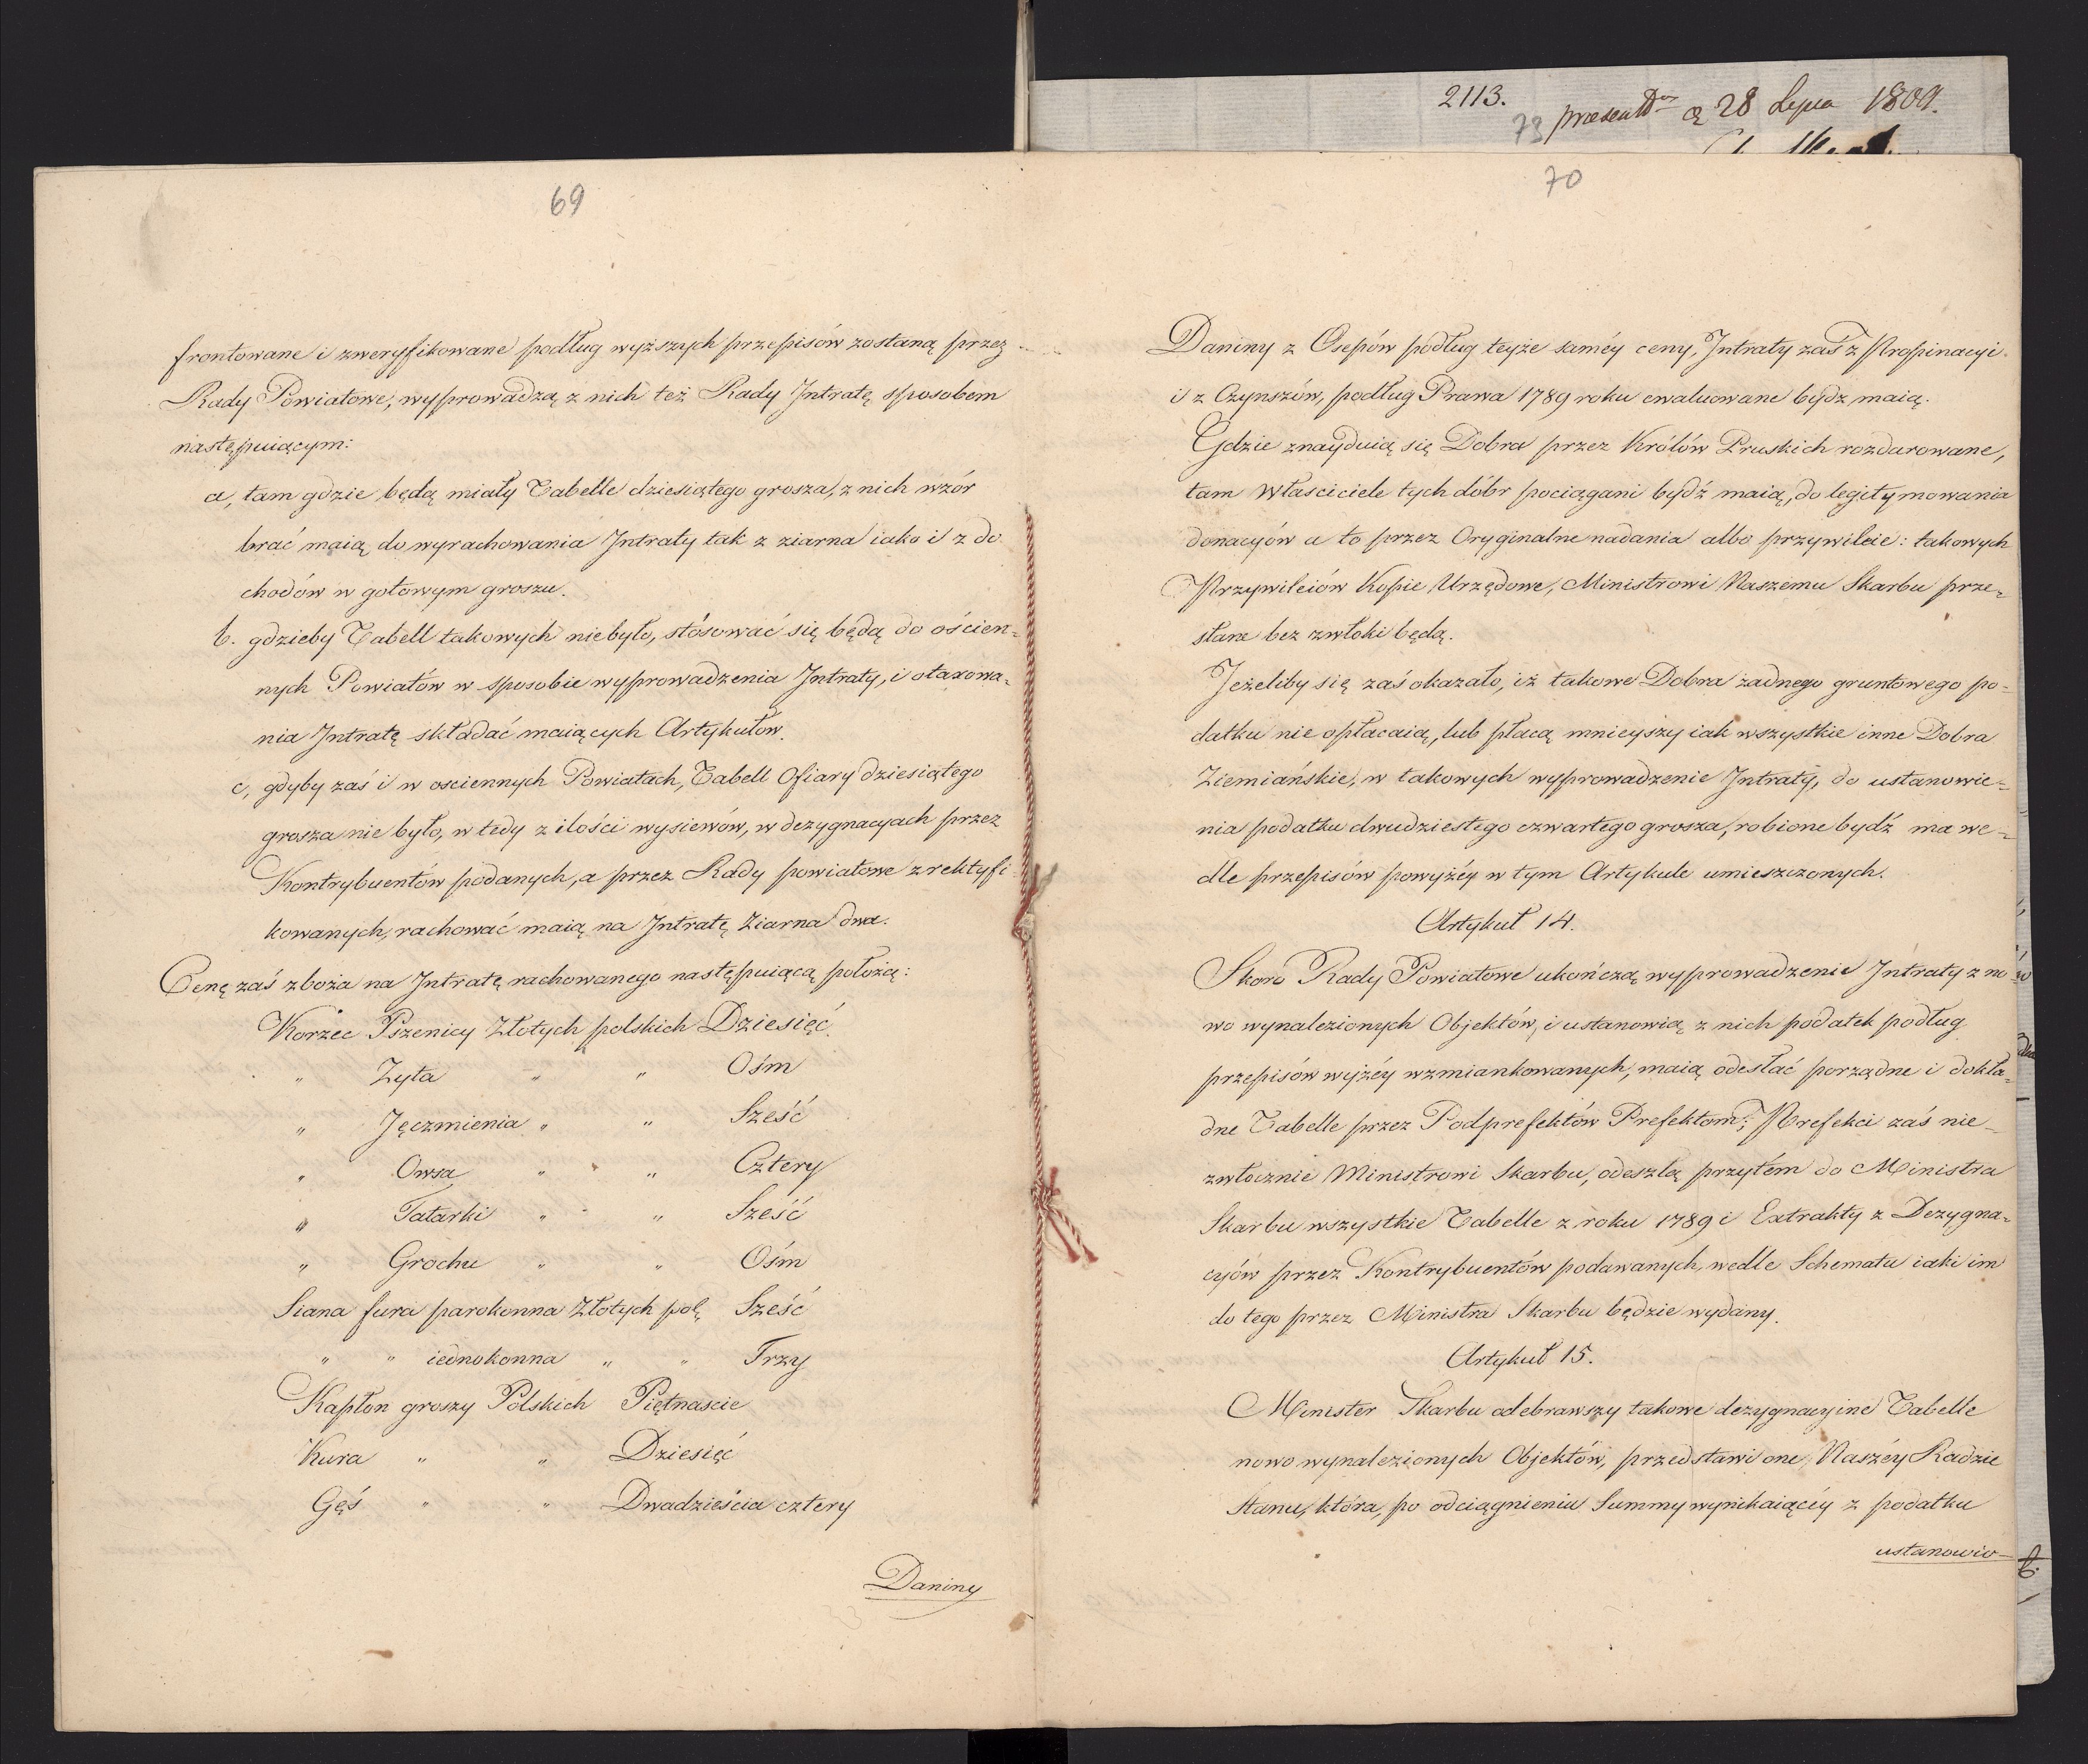 69
frontowane i zweryfikowane podług wyższych przepisów zostaną przez
Rady Powiatowe, wyprowadzą z nich też Rady Jntratę sposobem
następuiącym:
a, tam gdzie będą miały Tabelle dziesiątego grosza, z nich wzór
brać maią do wyrachowania Jntraty tak z ziarna iako i z do
chodów w gotowym groszu.
b. gdzieby Tabell takowych niebyło, stósować się będą do ościen=
nych Powiatów w sposobie wyprowadzenia Jntraty, i otaxowa=
nia Jntratę składać maiących Artykułów.
c, gdyby zaś i w osciennych Powiatach, Tabell Ofiary dziesiątego
grosza nie było, w tedy z ilości wysiewów, w dezygnacyach przez
Kontrybuentów podanych, a przez Rady powiatowe zrektyfi
kowanych, rachować maią na Jntratę Ziarna dwa.
Cenę zaś zboża na Jntratę rachowanego następuiącą położą:
Korzec Pszenicy Złotych polskich Dziesięć
" Żyta " " Ośm
" Jęczmienia " " Sześć
" Owsa " " Cztery
" Tatarki " " Sześć
" Grochu " " Ośm
Siana fura parokonna Złotych pol, Sześć
" " iednokonna " " Trzy
Kapłon groszy Polskich Piętnascie
Kura " " Dziesięć
Gęś " " Dwadzieścia cztery
Daniny
2113.
73 28 Lipca 1809.
70
Daniny z Osepów podług teyże saméy ceny, Jntraty zaś z Propinacyi
i z Czynszów, podług Prawa 1789 roku ewaluowane bydz maią.
Gdzie znayduią się Dobra przez Królów Pruskich rozdarowane,
tam Właściciele tych dóbr pociągani bydź maią, do legitymowania
donacyów a to przez Oryginalne nadania albo przywileie: takowych
Przywileiów Kopie Urzędowe, Ministrowi Naszemu Skarbu prze=
słane bez zwłoki będą.
Jeżeliby się zaś okazało, iż takowe Dobra żadnego gruntowego po=
datku nie opłacaią, lub płacą mnieyszy iak wszystkie inne Dobra
Ziemiańskie, w takowych wyprowadzenie Jntraty, do ustanowie=
nia podatku dwudziestego czwartego grosza, robione bydź ma we=
dle przepisów powyżéy w tym Artykule umieszczonych.
Artykuł 14.
Skoro Rady Powiatowe ukończą wyprowadzenie Jntraty z no
wo wynalezionych Objektów, i ustanowią z nich podatek podług
przepisów wyżéy wzmiankowanych, maią odesłać porządne i dokła=
dne Tabelle przez Podprefektów Prefektom; Prefekci zaś nie=
zwłocznie Ministrowi Skarbu, odeszlą przytém do Ministra
Skarbu wszystkie Tabelle z roku 1789 i Extrakty z Dezygna=
cyów przez Kontrybuentów podawanych, wedle Schematu iaki im
do tego przez Ministra Skarbu będzie wydany.
Artykuł 15.
Minister Skarbu odebrawszy takowe dezygnacyine Tabelle
nowo wynalezionych Objektów, przedstawi one, Naszéy Radzie
Stanu, która, po odciągnieniu Summy wynikaiącéy z podatku
ustanowio=